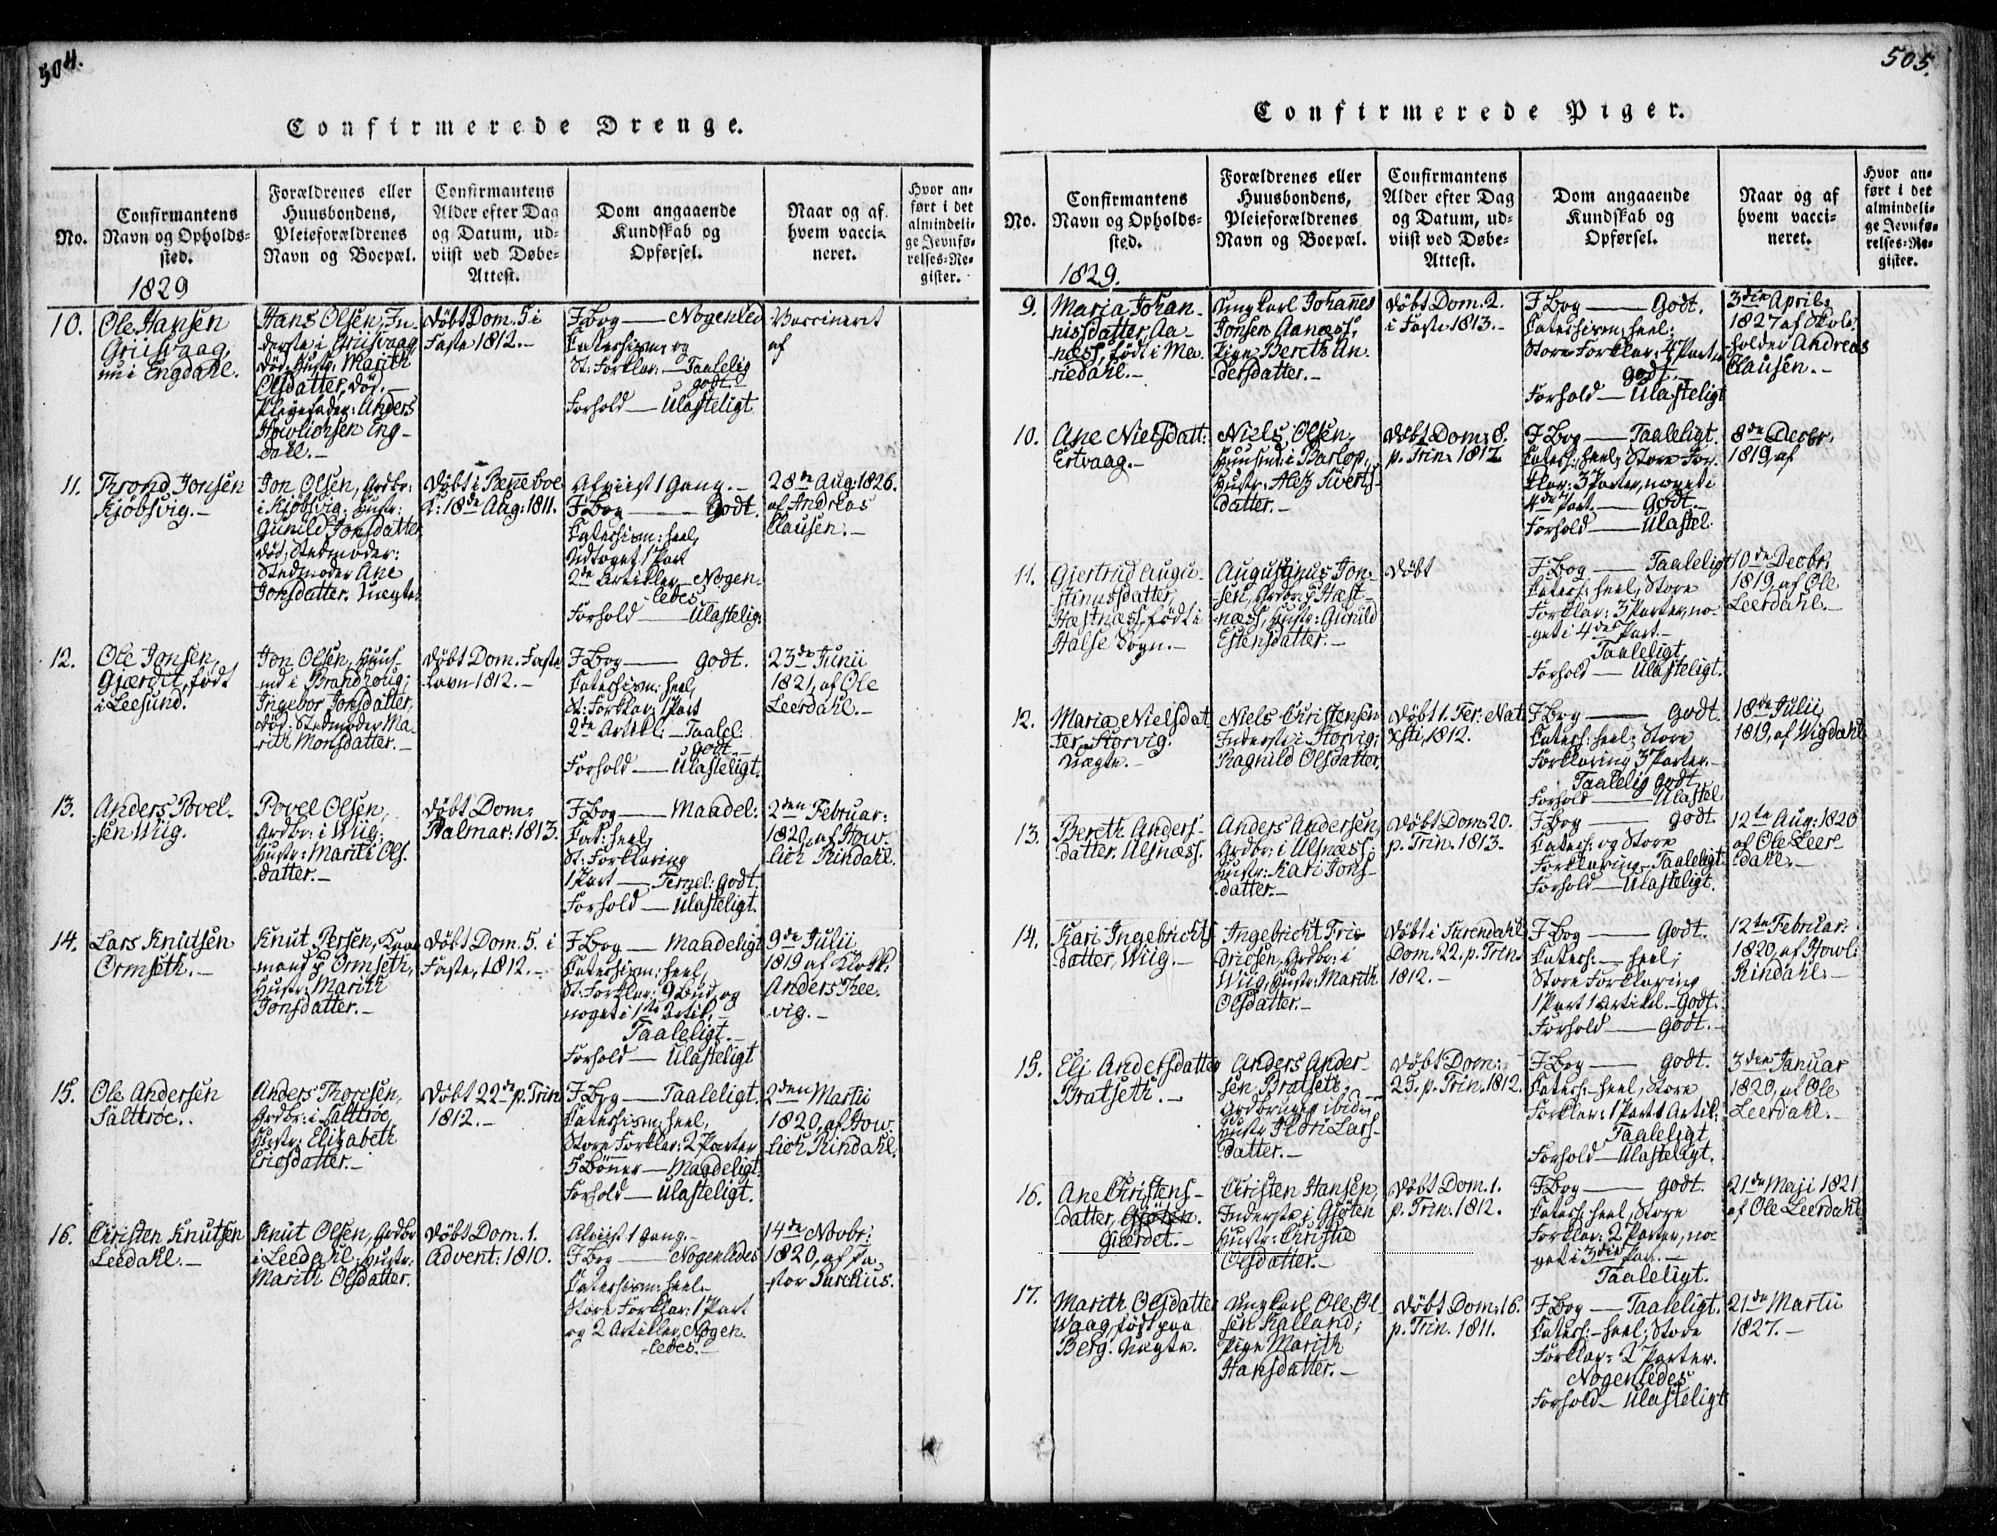 504.
Confirmerede Drenge.
No.
Confirmantens
Navn og Opholds-
sted.
1829
Forældrenes eller
Huusbondens,
Pleieforældrenes
Navn og Boepæl.
Confirmantens
Alder efter Dag
og Datum, ud-
viist ved Døbe-
Attest.
Dom angaaende
Kundskab og
Opførsel.
Naar og af
hvem vacci-
neret.
Hvor an-
ført i det
almindeli-
ge Jevnfø-
relses-Re-
gister.
10.
Ole Hansen
Griisvaag,
nu i Engdahl.
Hans Olsen, In-
derste i Griisvaag
død. Hustr: Marith
Olsdatter, død.
Pleyefader: Anders
Engdahl.
Døbt Dom. 5 i
Faste 1812.
F. Bog — Nogenled
Catechism: og
St: Forklar: — Taalelig
godt.
Forhold — Ulasteligt
Vaccineret
af
11.
Trond Jonsen
Kjøbsvig.
Jon Olsen, Grdbr:
i Kjøbsvig; Hustr:
Gunild Jonsdatter
død; Stedmoder:
Stedmoder Ane
Jonsdatter. Uægte.
Døbt i Renneboe
K: 18de Aug: 1811.
Afviist 1 Gang. —
F. Bog — Godt.
Catechism: heel,
Udtoget 1 Part
2de Artikler — Nogen-
ledes
Forhold — Ulastelig:
28de Aug: 1826.
af Andreas
Clausen. —
12.
Ole Jonsen
Gjærdet, født
i Leesund.
Jon Olsen, Huus-
md i Brandhoug;
Ingebor Jonsdatter,
død: Stedmoder Ma-
rith Monsdatter. —
Døbt Dom. Faste
Lavn 1812. —
F. Bog — Godt.
Catechism: heel,
St: Forklar: 1 Part
2de Artikl: — Taalel:
godt. —
Forhold — Ulasteligt.
23de Junii
1821, af Ole
Leerdahl. —
13.
Anders Povel-
sen Wiig.
Povel Olsen,
Grdbr: i Wiig;
Hustr: Mariti Ols-
datter. —
Døbt Dom:
Palmar: 1813.
F. Bog — Maadel:
Cat: heel,
St: Forklaring
1 Part — Temel: Godt.
Forhold — Ulasteligt.
2den Februar:
1820, af How-
lich Rindahl.
14.
Lars Knutsen
Ormseth. —
Knut Persen,
mand p Ormseth,
Hustr: Marith
Jonsdatter. —
Døbt Dom. 5. i
Faste, 1812. —
F. Bog — Maadeligt
Catechism: heel,
St: Forklar: 9 Bud, og
noget i 1ste Artik. —
Taaleligt. —
Forhold — Ulasteligt
9de Julii
1819 af Klokk:
Anders Ree-
vig. —
15.
Ole Andersen
Salttrøe.
Anders Thoresen,
Grdbr: i Salttrøe,
Hustr: Elizabeth
Ericsdatter. —
Døbt 22de p. Trin
1812. —
F. Bog — Taaleligt.
Catechism: heel,
Store Forklar: 2 Parter
5 Bønner — Maadeligt.
Forhold — Ulasteligt.
2den Martii
1820, af How-
lich Rindahl.
16.
Christen Knutsen
Leedahl. —
Knut Olsen, Grdbr
i Leedahl; Hustr:
Marith Olsdatter.
Døbt Dom. 1.
Advent: 1810.
Afviist 1 Gang. —
F. Bog — Nogenledes
Catechism: heel.
Store Forklar: 1 Part
og 2 Artikler, Nogen-
ledes. —
14de Novbr:
1820, af Pa-
stor Surelius.
505.
Confirmerede Piger.
No.
Confirmantens
Navn og Opholds-
sted.
1829.
Forældrenes eller
Huusbondens,
Pleieforældrenes
Navn og Boepæl.
Confirmantens
Alder efter Dag
og Datum, ud-
viist ved Døbe-
Attest.
Dom angaaende
Kundskab og
Opførsel.
Naar og af
hvem vacci-
neret.
Hvor an-
ført i det
almindeli-
ge Jevnfø-
relses-Re-
gister.
9.
Maria Johan-
nisdatter, Aa-
næss, født i Ma-
riedahl. —
Ungkarl Johannes
Jonsen Aanæss,
Pige Bereth An-
dersdatter. —
Døbt Dom. 2.
i Faste 1813. —
F. Bog — Godt.
Catechism: heel:
Store Forklar: 4 Parter
godt. —
Forhold — Ulasteligt
3die April:
1827 af Skole-
holder Andreas
Clausen. —
10.
Ane Nielsdatt:
Ertvaag. —
Niels Olsen,
Huusmd: i Barlop,
Hustr: Alez Siverts-
datter. —
Døbt Dom: 8.
p. Trin: 1812.
F. Bog — Taaleligt.
Catech: heel, Store For-
klar: 3 Parter, noget i
4de Part. — Godt. —
Forhold — Ulastel.
8de Decbr,
1819, af
11.
Gjertrud Augu-
stinusdatter,
Hestnæss, født i
Halse Sogn. —
Augustinus Jon-
sen, Grdbr: p Hest-
næss, Hustr: Gunild
Estensdatter. —
Døbt
F. Bog — Taaleligt
Catech: heel, Store
Forklar: 3 Parter, no-
get i 4de Part. —
Taaleligt
Forhold — Ulasteligt.
10de Decbr,
1819, af Ole
Leerdahl. —
12.
Maria Nielsdat
ter Storvig.
Uægte. —
Niels Christensen
Inderste i Storvig;
Ragnild Olsdatter,
Døbt 1. Fer. Nat.
Xsti, 1812.
F. Bog — Godt.
Catech: heel; Store
Forklaring 3 Parter. —
Taalelig godt
Forhold — Ulastel
18de Julii
1819, af Wigdahl
13.
Bereth Anders-
datter. Ulsnæss.
Anders Andersen,
Grdbr: i Ulsnæss;
Hustr: Kari Jons-
datter. —
Døbt Dom: 20.
p. Trin. 1813. —
F. Bog — godt.
Catech: og Store
Forklaring — Taaleligt.
Forhold — Ulasteligt.
12te Aug: 1820
af Ole Leer-
dahl. —
14.
Kari Ingebrichts
datter, Wiig. —
Ingebricht Fri-
dricsen, Grdbr: i
Wiig, Hustr: Marith
Olsdatter. —
Døbt i Surendahl
Dom. 22. p. Trin.
1812. —
F. Bog — Godt.
Catech: — heel;
Store Forklaring
1 Part 1 Artikel. — Godt.
Forhold — Godt. —
12te Februar:
1820, af Howl:
Rindahl. —
15.
Eli Andersdatter
Bratseth. —
Anders Ander-
sen Bratseth,
Gaardbruger ibid;
Hustr Sidri Lars-
datter. —
Døbt Dom:
25. p. Trin. 1812.
F. Bog — Godt.
Catech: — heel, Store
Forklar: 1 Part 1 Artik:
Taaleligt
Forhold — Ulasteligt.
3die Januar
1820, af Ole
Leerdahl. —
16.
Ane Christens-
datter, Gjøten.
Gjærdet. —
Christen Hansen,
Inderste i Gjøten
Hustr: Christie
Olsdatter. —
Døbt Dom. 1.
p. Trin. 1812.
F. Bog — Godt.
Catech: heel, Store
Forklar: 2 Parter, no-
get i 3die Par. —
Taaleligt.
21de Maji 1821
af Ole Leerdahl
17.
Marith Olsdatter
Waag, født paa
Berg. Uægte.
Ungkarl Ole Ol-
sen Kalland;
Pige Marith
Hansdatter. —
Døbt Dom: 16.
p. Trin. 1811.
F. Bog — Taaleligt.
Catech: — heel; Store
Forklar: 2 Parter.
Nogenledes
Forhold — Ulasteligt
21de Martii
1827. —